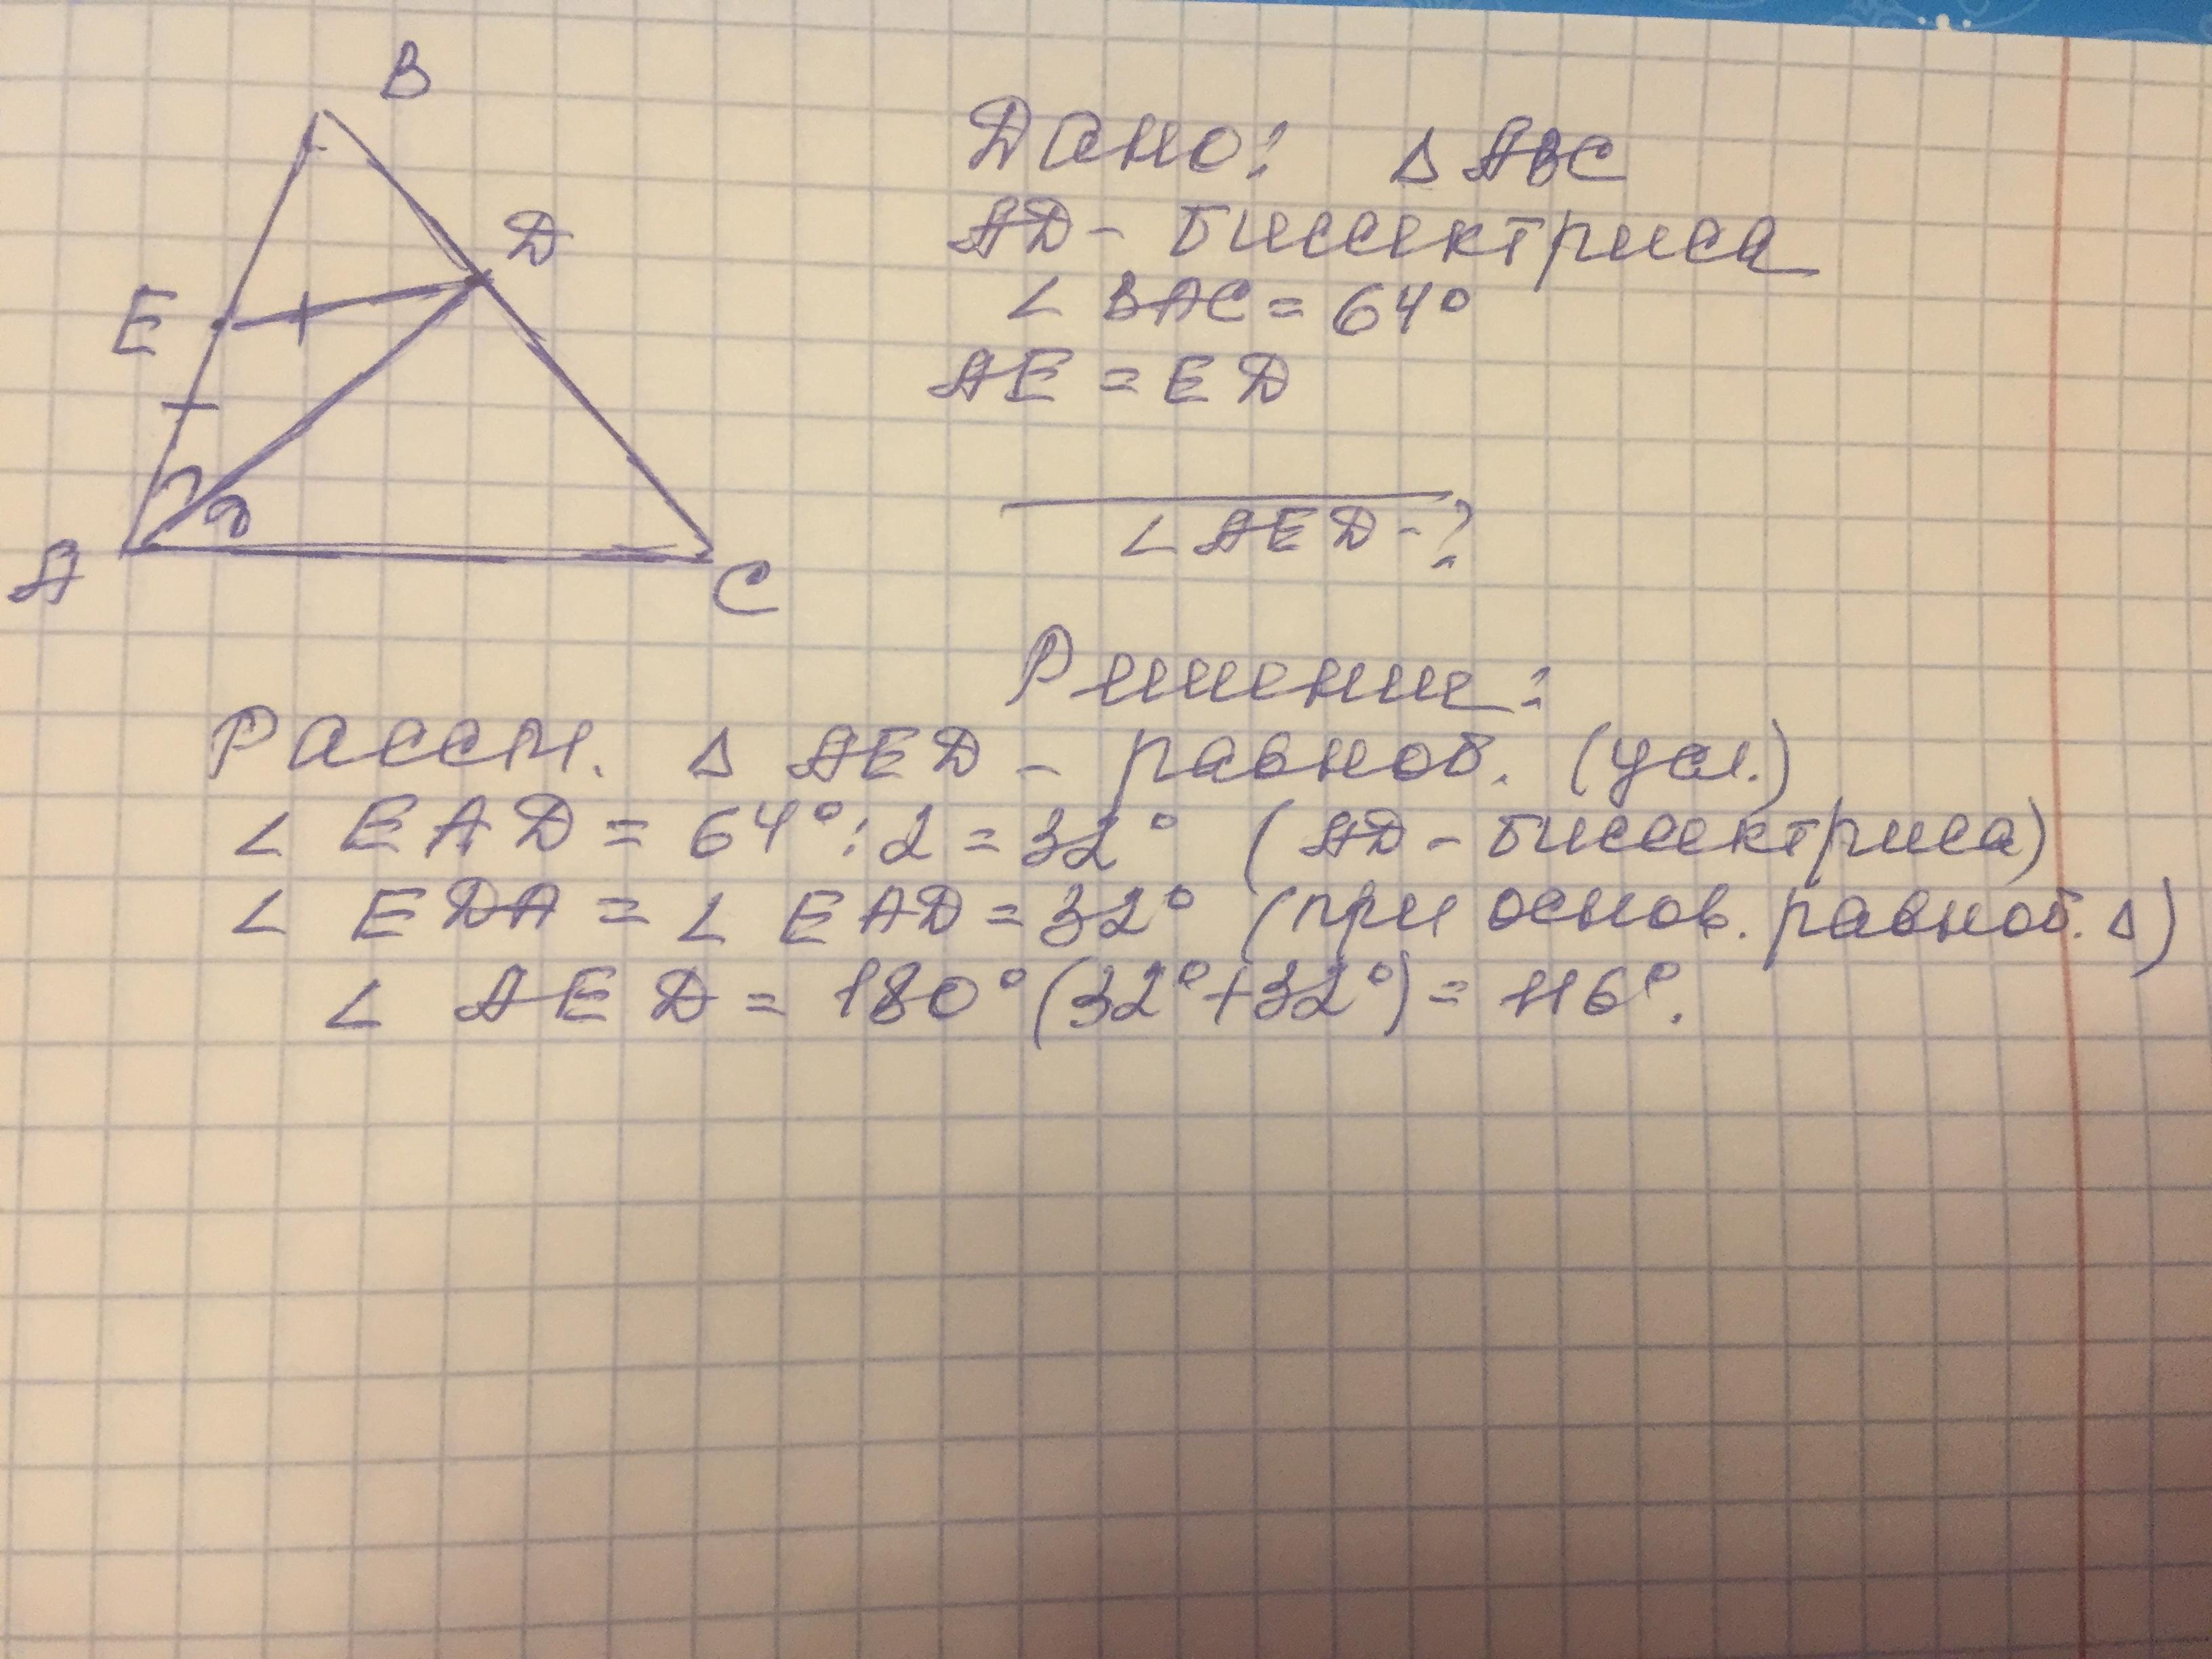 B
D
E
A
C
Дано: Δ ABC
AD - биссектриса
∠ BAC = 64°
AE = ED
∠ AED - ?
Решение:
Рассм. Δ AED - равноб. (усл.)
∠ EAD = 64° : 2 = 32° (AD - биссектриса)
∠ EDA = ∠ EAD = 32° (при основ. равноб. Δ)
∠ AED = 180° (32° + 32°) = 116°.